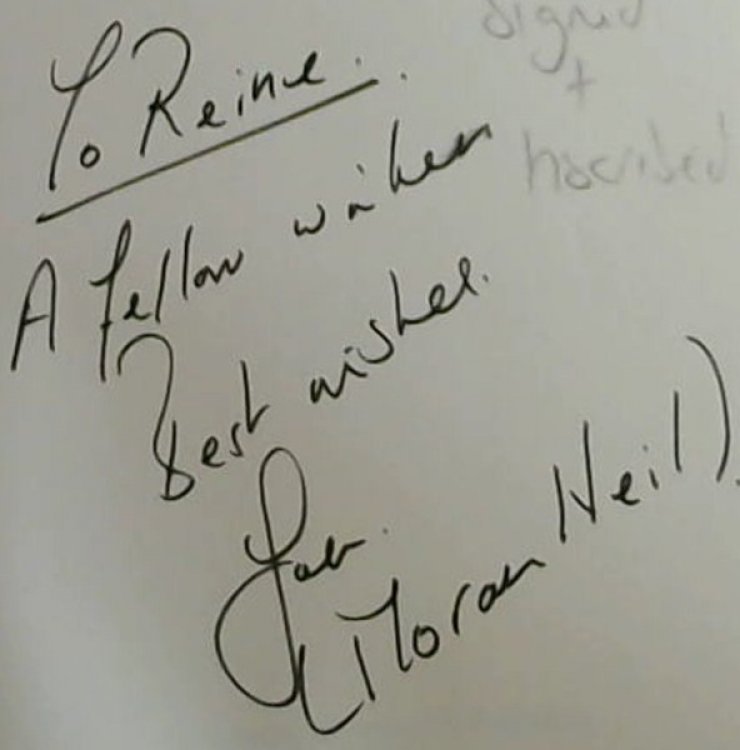 signed
+
Inscribed
To Reine.
A fellow writer
Best wishes.
Jan.
(Moran Neil).